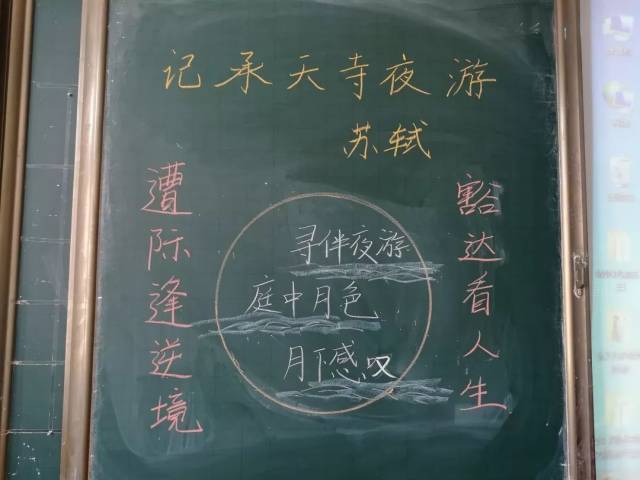 记承天寺夜游
苏轼
遭际逢逆境
寻伴夜游
庭中月色
月下感叹
豁达看人生